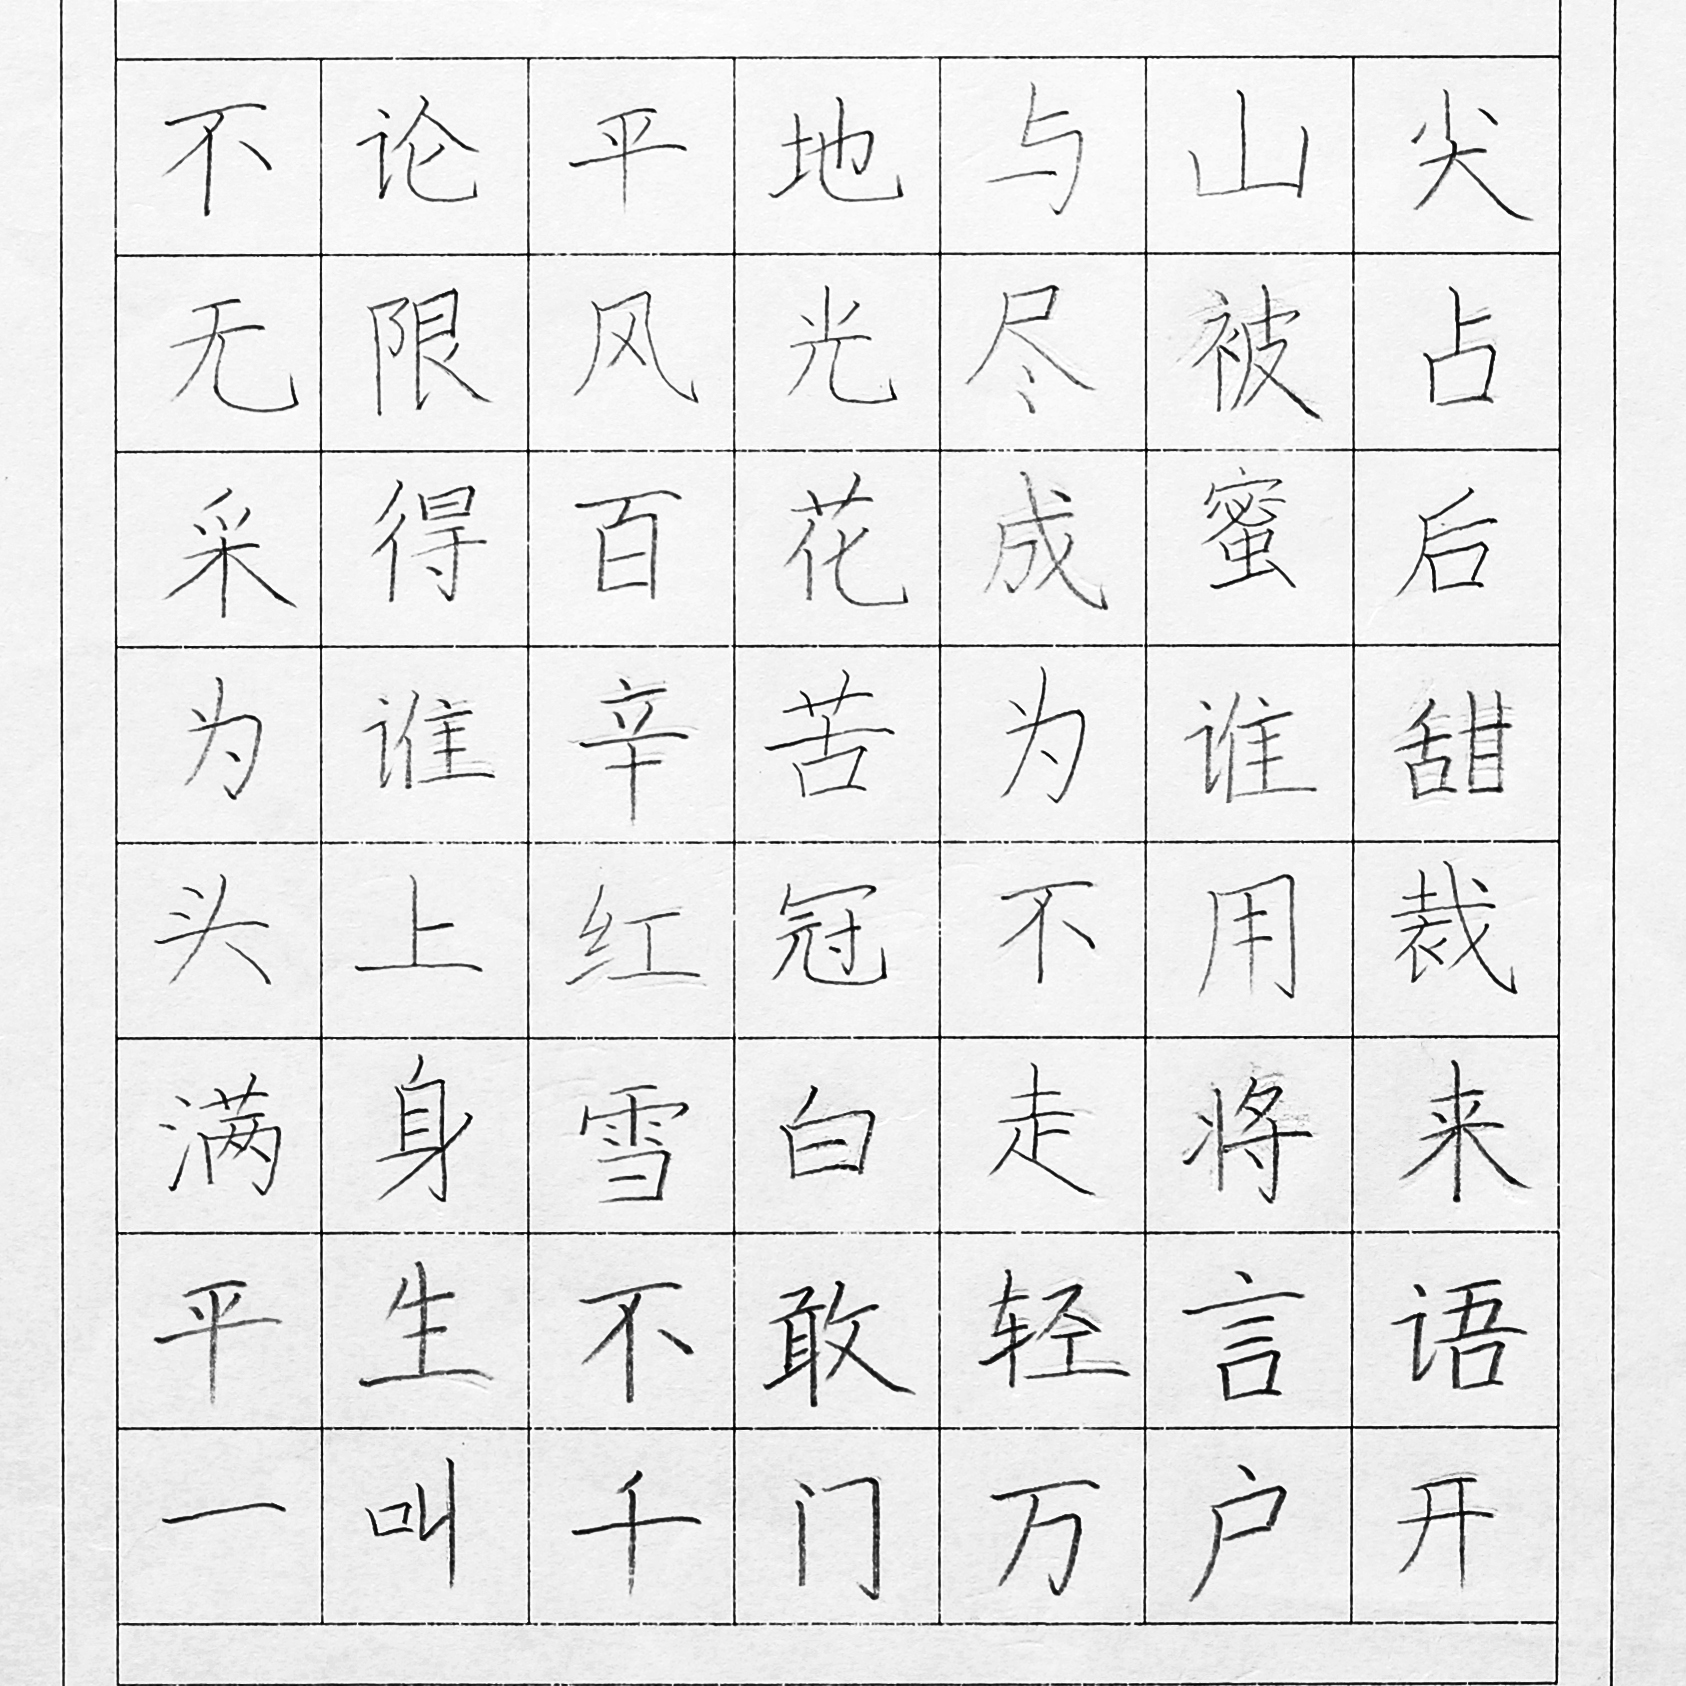 不论平地与山尖
无限风光尽被占
采得百花成蜜后
为谁辛苦为谁甜
头上红冠不用裁
满身雪白走将来
平生不敢轻言语
一叫千门万户开